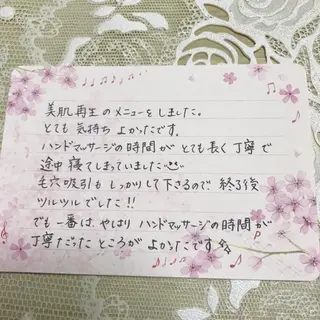 美肌再生のメニューをしました。
とても気持ちよかったです。
ハンドマッサージの時間がとても長く丁寧で
途中寝てしまっていました
毛穴吸引もしっかりして下さるので終了後
ツルツルでした!!
でも一番は、やはりハンドマッサージの時間が
丁寧だったところがよかったです☆